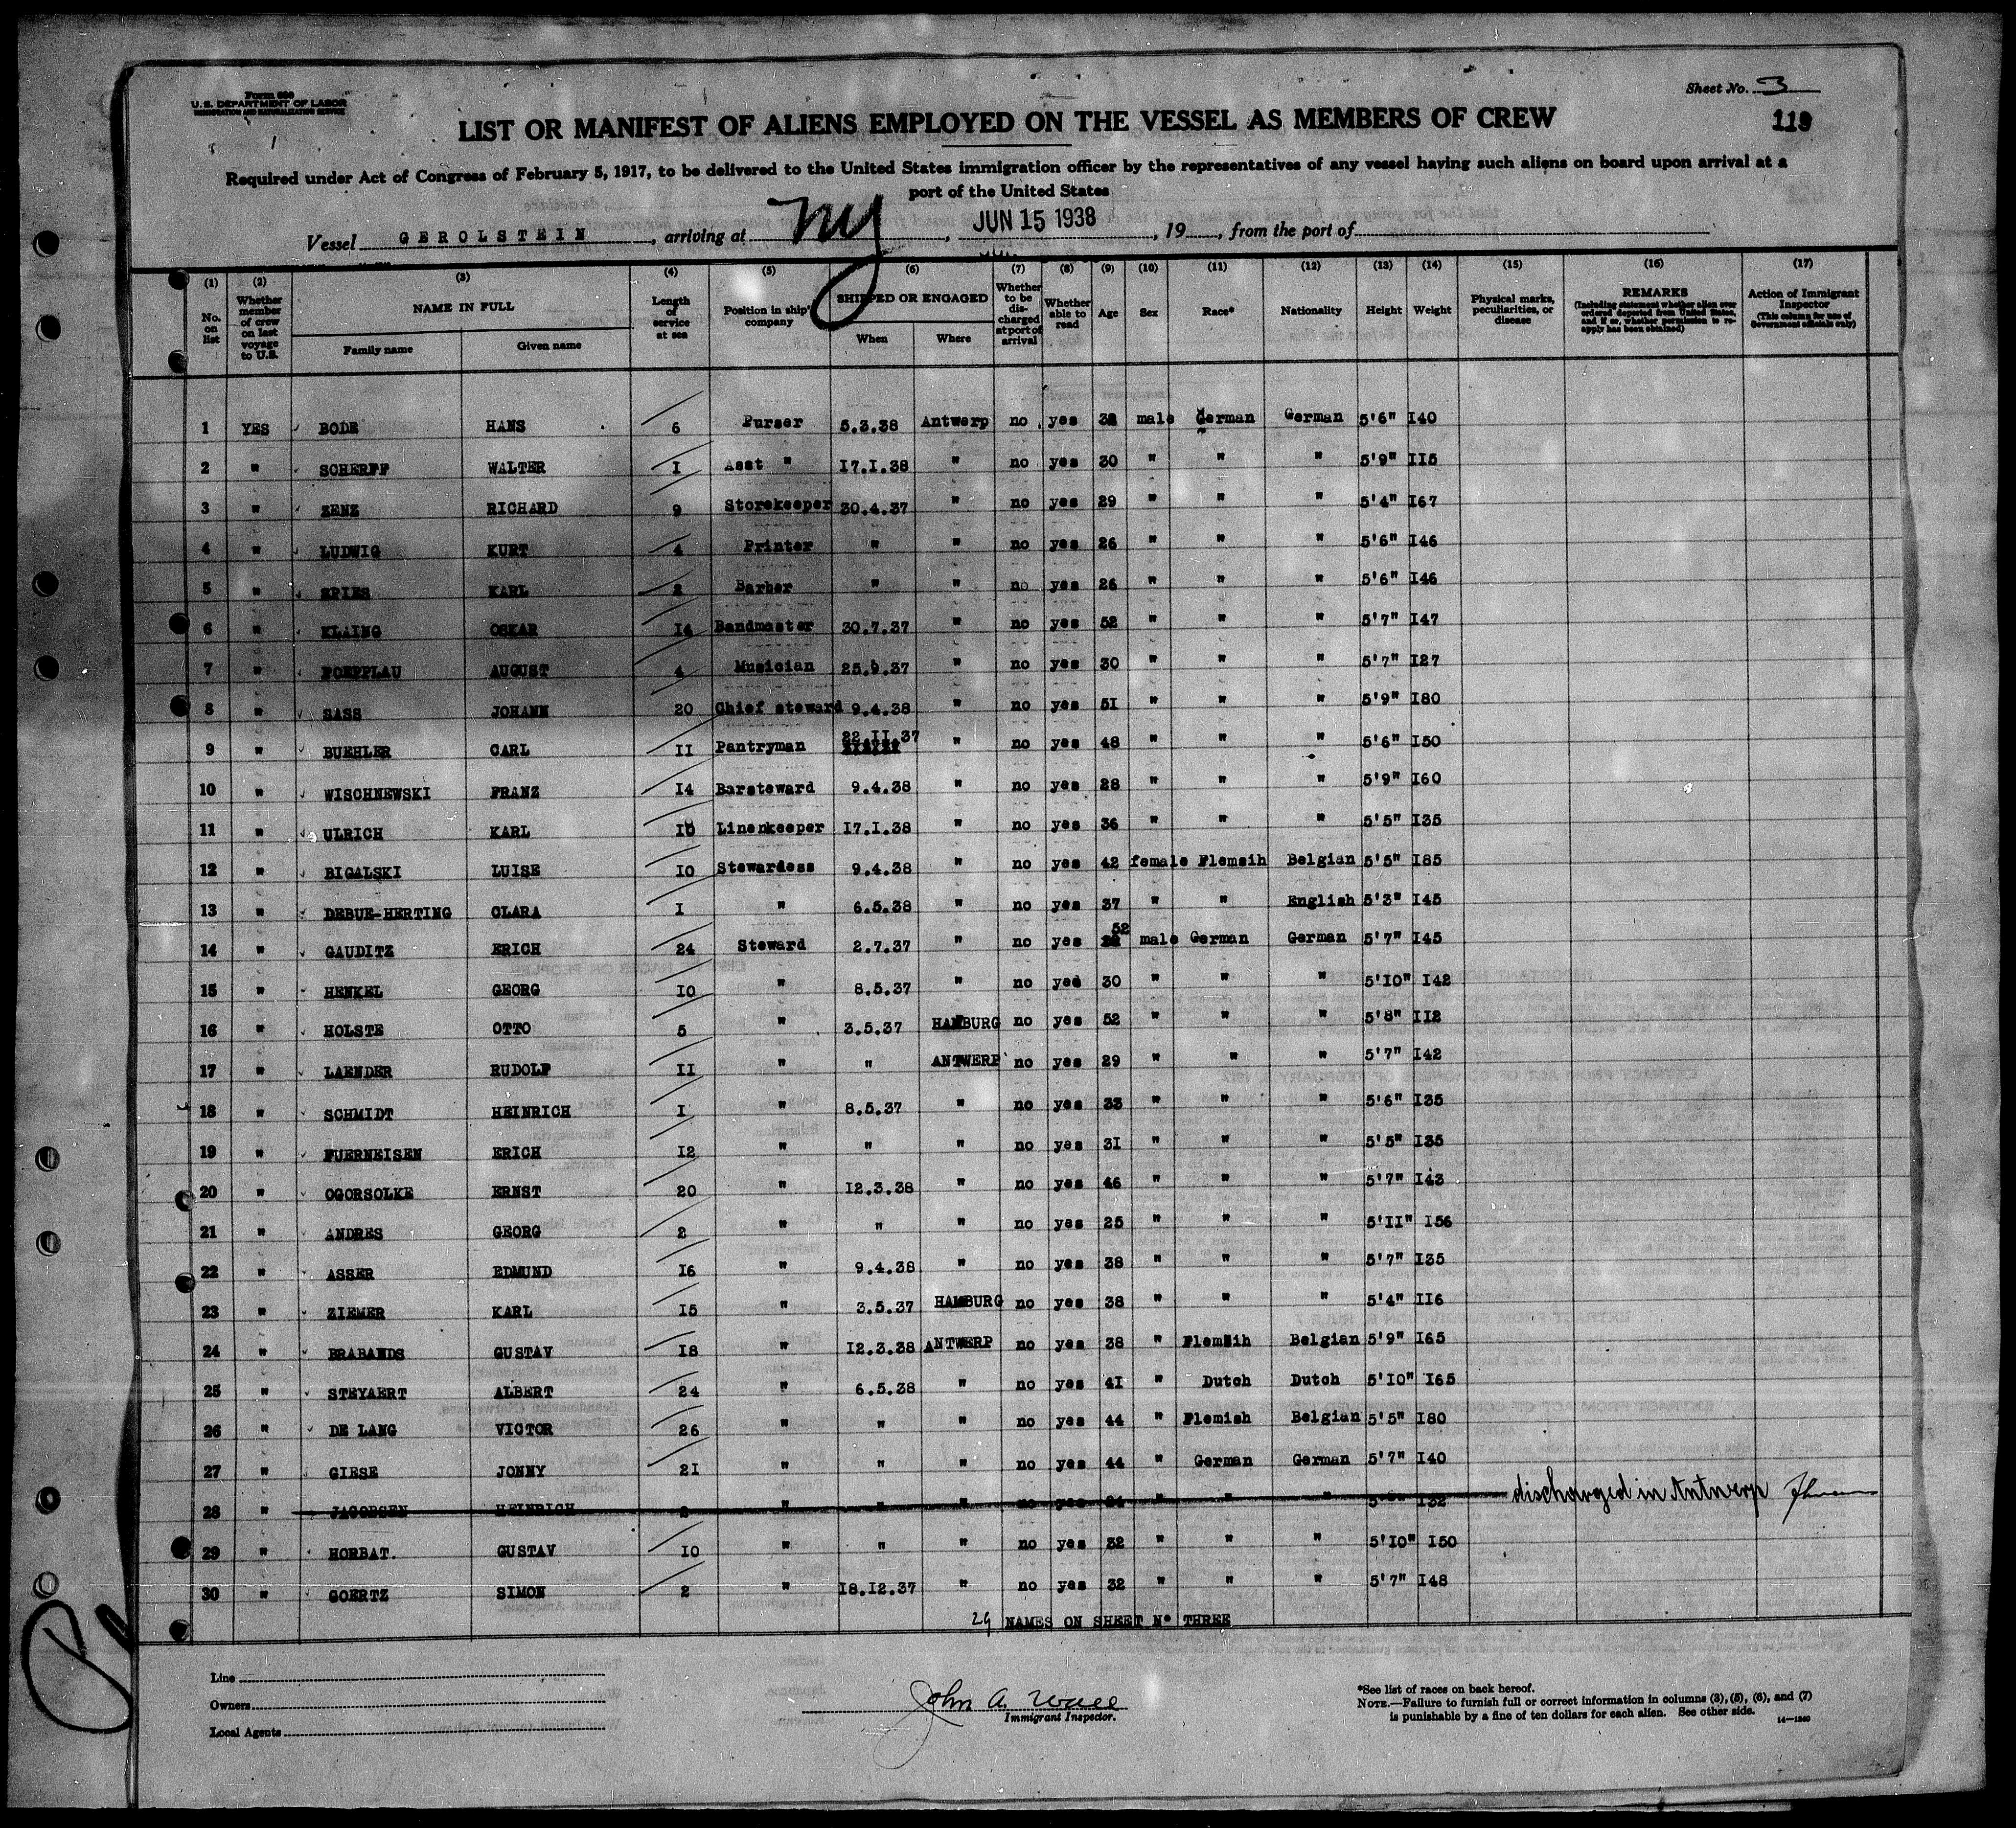 Form 689
U. S. DEPARTMENT OF LABOR
IMMIGRATION AND NATURALIZATION SERVICE
Sheet No. 3
119
LIST OR MANIFEST OF ALIENS EMPLOYED ON THE VESSEL AS MEMBERS OF CREW
Required under Act of Congress of February 5, 1917, to be delivered to the United States immigration officer by the representatives of any vessel having such aliens on board upon arrival at a
port of the United States
Vessel GEROLSTEIN, arriving at NY, JUN 15 1938, 19, from the port of
(1) (2) (3) (4) (5) (6) (7) (8) (9) (10) (11) (12) (13) (14) (15) (16) (17)
No. on list
Whether member of crew on last voyage to U.S.
NAME IN FULL
Family name Given name
Length of service at sea
Position in ship's company
SHIPPED OR ENGAGED
When Where
Whether to be discharged at port of arrival
Whether able to read
Age Sex Race* Nationality Height Weight
Physical marks, peculiarities, or disease
REMARKS
(Including statement whether alien ever ordered deported from United States, and if so, whether permission to reapply has been obtained)
Action of Immigrant Inspector
(This column for use of Government officials only)
1 YES BODE HANS 6 Purser 5.3.38 Antwerp no yes 38 male German German 5'6" I40
2 " SCHERFF WALTER I Asst " I7.I.38 " no yes 30 " " " 5'9" II5
3 " ZENZ RICHARD 9 Storekeeper 30.4.37 " no yes 29 " " " 5'4" I67
4 " LUDWIG KURT 4 Printer " " no yes 26 " " " 5'6" I46
5 " SPIES KARL 2 Barber " " no yes 26 " " " 5'6" I46
6 " KLAING OSKAR I4 Bandmaster 30.7.37 " no yes 52 " " " 5'7" I47
7 " POEPPLAU AUGUST 4 Musician 25.9.37 " no yes 30 " " " 5'7" I27
8 " SASS JOHANN 20 Chief steward 9.4.38 " no yes 5I " " " 5'9" I80
9 " BUEHLER CARL II Pantryman 22.II.37 " no yes 48 " " " 5'6" I50
10 " WISCHNEWSKI FRANZ I4 Barsteward 9.4.38 " no yes 28 " " " 5'9" I60
11 " ULRICH KARL I0 Linenkeeper I7.I.38 " no yes 36 " " " 5'5" I35
12 " BIGALSKI LUISE IO Stewardess 9.4.38 " no yes 42 female Flemsih Belgian 5'5" I85
13 " DEBUE-HERTING CLARA I " 6.5.38 " no yes 37 " " English 5'3" I45
14 " GAUDITZ ERICH 24 Steward 2.7.37 " no yes 52 male German German 5'7" I45
15 " HENKEL GEORG IO " 8.5.37 " no yes 30 " " " 5'IO" I42
16 " HOLSTE OTTO 5 " 3.5.37 HAMBURG no yes 52 " " " 5'8" II2
17 " LAENDER RUDOLF II " " ANTWERP no yes 29 " " " 5'7" I42
18 " SCHMIDT HEINRICH I " 8.5.37 " no yes 33 " " " 5'6" I35
19 " FUERNEISEN ERICH I2 " " " no yes 3I " " " 5'5" I35
20 " OGORSOLKE ERNST 20 " I2.3.38 " no yes 46 " " " 5'7" I43
21 " ANDRES GEORG 2 " " " no yes 25 " " " 5'II" I56
22 " ASSER EDMUND I6 " 9.4.38 " no yes 38 " " " 5'7" I35
23 " ZIEMER KARL I5 " 3.5.37 HAMBURG no yes 38 " " " 5'4" II6
24 " BRABANDS GUSTAV I8 " I2.3.38 ANTWERP no yes 38 " Flemsih Belgian 5'9" I65
25 " STEYAERT ALBERT 24 " 6.5.38 " no yes 4I " Dutch Dutch 5'IO" I65
26 " DE LANG VICTOR 26 " " " no yes 44 " Flemish Belgian 5'5" I80
27 " GIESE JONNY 2I " " " no yes 44 " German German 5'7" I40
28 " JACOBSEN HEINRICH " " " no yes " " " I32 discharged in Antwerp
29 " HORBAT. GUSTAV IO " " " no yes 32 " " " 5'IO" I50
30 " GOERTZ SIMON 2 " I8.I2.37 " no yes 32 " " " 5'7" I48
29 NAMES ON SHEET N° THREE
Line
Owners
Local Agents
John A. Wall
Immigrant Inspector.
*See list of races on back hereof.
NOTE.—Failure to furnish full or correct information in columns (3), (5), (6), and (7)
is punishable by a fine of ten dollars for each alien. See other side. 14—1240